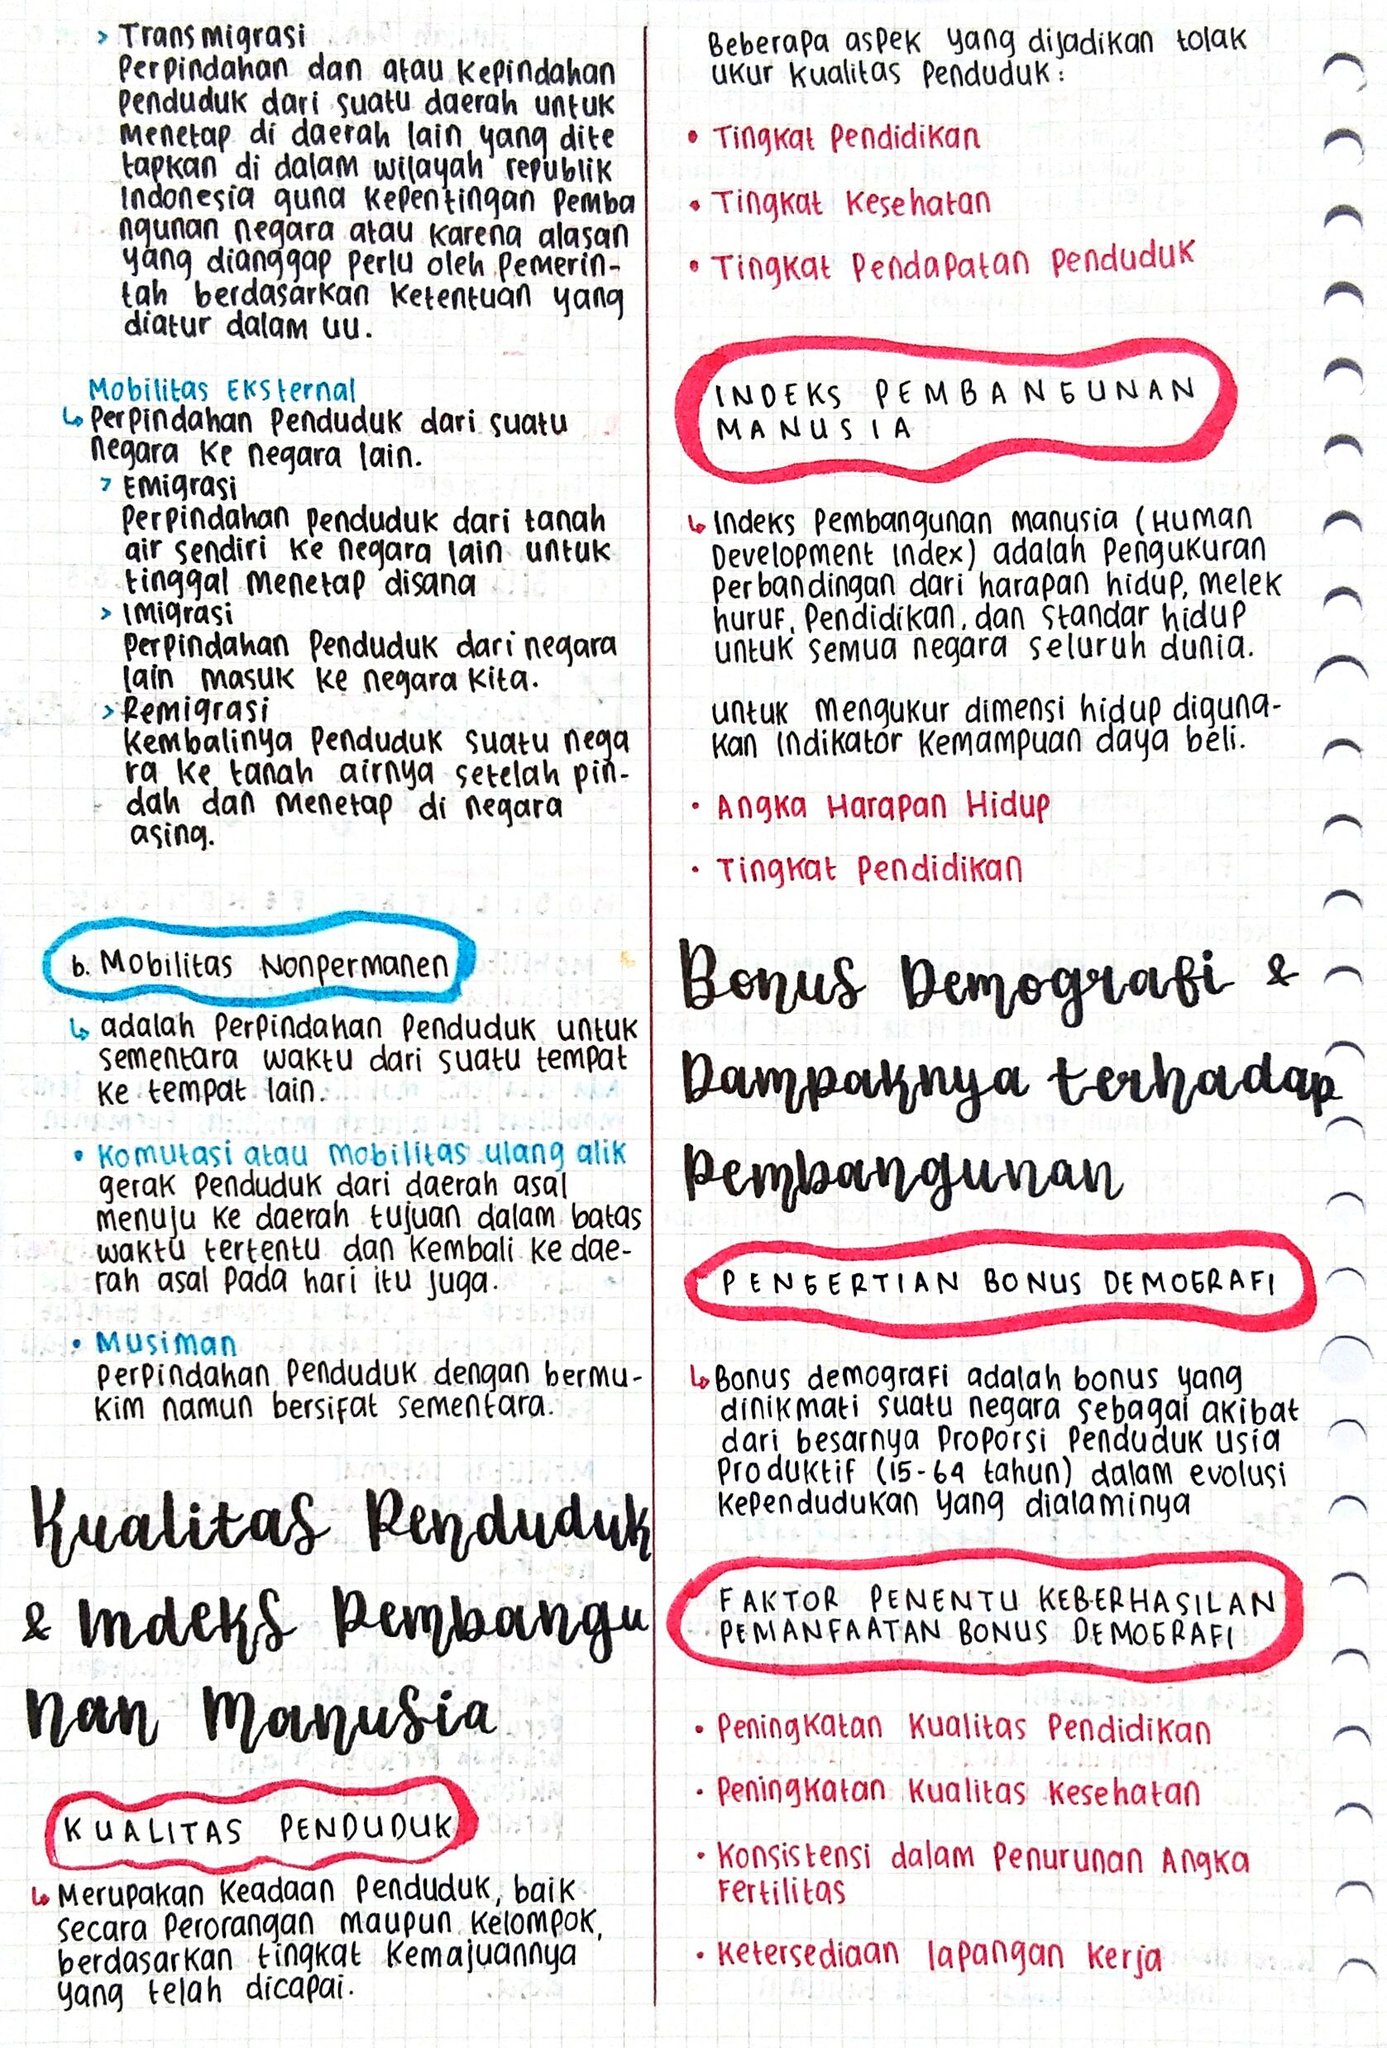 > Transmigrasi
Perpindahan dan atau kepindahan
penduduk dari suatu daerah untuk
menetap di daerah lain yang dite
tapkan di dalam wilayah republik
Indonesia guna kepentingan pemba
ngunan negara atau karena alasan
yang dianggap perlu oleh pemerin-
tah berdasarkan ketentuan yang
diatur dalam uu.
Mobilitas Eksternal
↳ Perpindahan penduduk dari suatu
negara ke negara lain.
> Emigrasi
Perpindahan penduduk dari tanah
air sendiri ke negara lain untuk
tinggal menetap disana
> Imigrasi
Perpindahan penduduk dari negara
lain masuk ke negara kita.
> Remigrasi
Kembalinya penduduk suatu nega
ra ke tanah airnya setelah pin-
dah dan menetap di negara
asing.
b. Mobilitas Nonpermanen
↳ adalah perpindahan penduduk untuk
sementara waktu dari suatu tempat
ke tempat lain.
• Komutasi atau mobilitas ulang alik
gerak penduduk dari daerah asal
menuju ke daerah tujuan dalam batas
waktu tertentu dan kembali ke dae-
rah asal pada hari itu juga.
• Musiman
Perpindahan penduduk dengan bermu-
kim namun bersifat sementara.
Kualitas Penduduk
& Indeks Pembangu
nan Manusia
KUALITAS PENDUDUK
↳ Merupakan keadaan penduduk, baik
secara perorangan maupun kelompok,
berdasarkan tingkat kemajuannya
yang telah dicapai.
Beberapa aspek yang dijadikan tolak
ukur kualitas penduduk:
• Tingkat Pendidikan
• Tingkat Kesehatan
• Tingkat Pendapatan Penduduk
INDEKS PEMBANGUNAN
MANUSIA
↳ Indeks Pembangunan Manusia (Human
Development Index) adalah pengukuran
perbandingan dari harapan hidup, melek
huruf, pendidikan, dan standar hidup
untuk semua negara seluruh dunia.
untuk mengukur dimensi hidup diguna-
kan indikator kemampuan daya beli.
• Angka Harapan Hidup
• Tingkat Pendidikan
Bonus Demografi &
Dampaknya terhadap
Pembangunan
PENGERTIAN BONUS DEMOGRAFI
↳ Bonus demografi adalah bonus yang
dinikmati suatu negara sebagai akibat
dari besarnya proporsi penduduk usia
produktif (15-64 tahun) dalam evolusi
kependudukan yang dialaminya
FAKTOR PENENTU KEBERHASILAN
PEMANFAATAN BONUS DEMOGRAFI
• Peningkatan Kualitas Pendidikan
• Peningkatan Kualitas Kesehatan
• Konsistensi dalam Penurunan Angka
Fertilitas
• Ketersediaan lapangan kerja